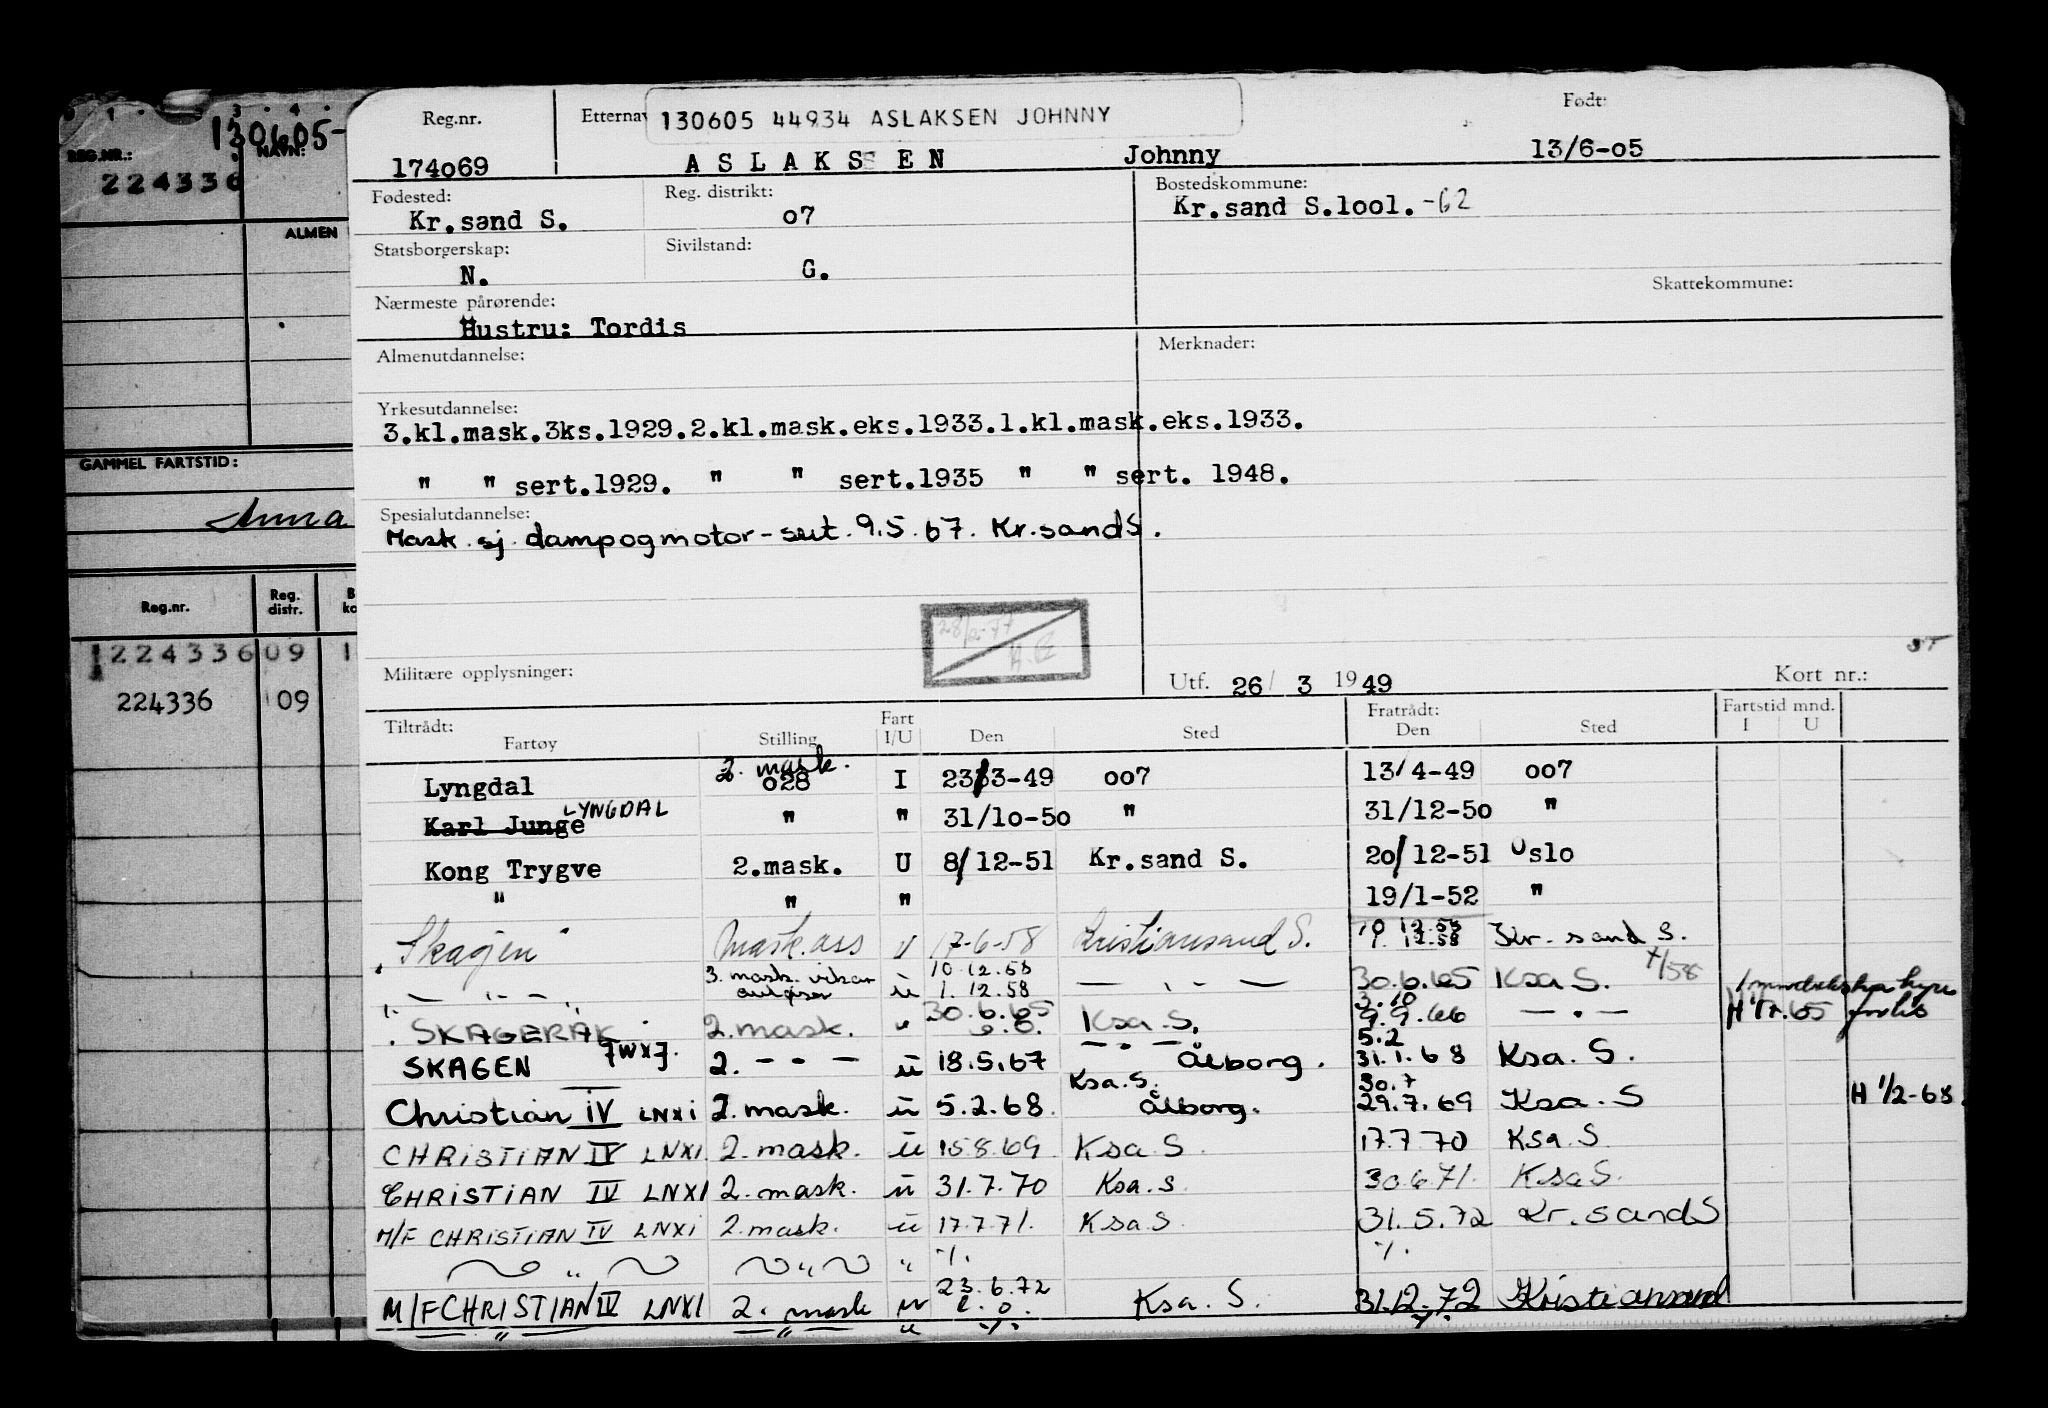 130605-
REG.NR.: NAVN:
224336
ALMEN
GAMMEL FARTSTID:
Anna
Reg.nr. Reg. distr. B ko
224336 09 1
224336 09
Reg.nr. Etternav 130605 44934 ASLAKSEN JOHNNY Født:
174069 ASLAKSEN Johnny 13/6-05
Fødested: Reg. distrikt: Bostedskommune:
Kr.sand S. 07 Kr.sand S.1001.-62
Statsborgerskap: Sivilstand:
N. G.
Nærmeste pårørende: Skattekommune:
Hustru: Tordis
Almenutdannelse: Merknader:
Yrkesutdannelse:
3.kl.mask.3ks.1929.2.kl.mask.eks.1933.1.kl.mask.eks.1933.
" " sert.1929. " " sert.1935 " " sert. 1948.
Spesialutdannelse:
Mask. sj. dampogmotor-sert. 9.5.67. Kr.sandS.
28/2-77
Militære opplysninger: Utf. 26/ 3 1949 Kort nr.:
Tiltrådt: Fart Fratrådt: Fartstid mnd.
Fartøy Stilling I/U Den Sted Den Sted I U
2. mask.
Lyngdal 028 I 23/3-49 007 13/4-49 007
LYNGDAL
Karl Junge " " 31/10-50 " 31/12-50 "
Kong Trygve 2.mask. U 8/12-51 Kr.sand S. 20/12-51 Oslo
" " " 19/1-52 "
10.12.58
"Skagen" Mask.ass U 17-6-58 Kristiansand S. 1.12.58 Kr. sand S.
3. mask. vikar 10.12.58
— " — avløser ü 1.12.58 — " — 30.6.65 Ksa S.
30.6.65 3.10
"SKAGERAK" 2. mask. " Ksa. S. 9.9.66 — " — H 1/7.65
— " — 5.2
SKAGEN JWXJ. 2. — " — ü 18.5.67 Ålborg. 31.1.68 Ksa. S.
Ksa. S. 30.7
Christian IV LNXI 2. mask. ü 5.2.68. Ålborg. 29.7.69 Ksa. S H 1/2-68.
CHRISTIAN IV LNXI. 2. mask. ü 15.8.69 Ksa S. 17.7.70 Ksa. S
CHRISTIAN IV LNXI 2. mask. ü 31.7.70 Ksa. S 30.6.71. Ksa S.
M/F CHRISTIAN IV LNXI 2. mask. ü 17.7.71. Ksa S. 31.5.72 Kr. sand S
" " " ./. ./.
23.6.72
M/F CHRISTIAN IV LNXI 2. mask u e.o. Ksa. S. 31.12.72 Kristiansand
" " u ./. ./.